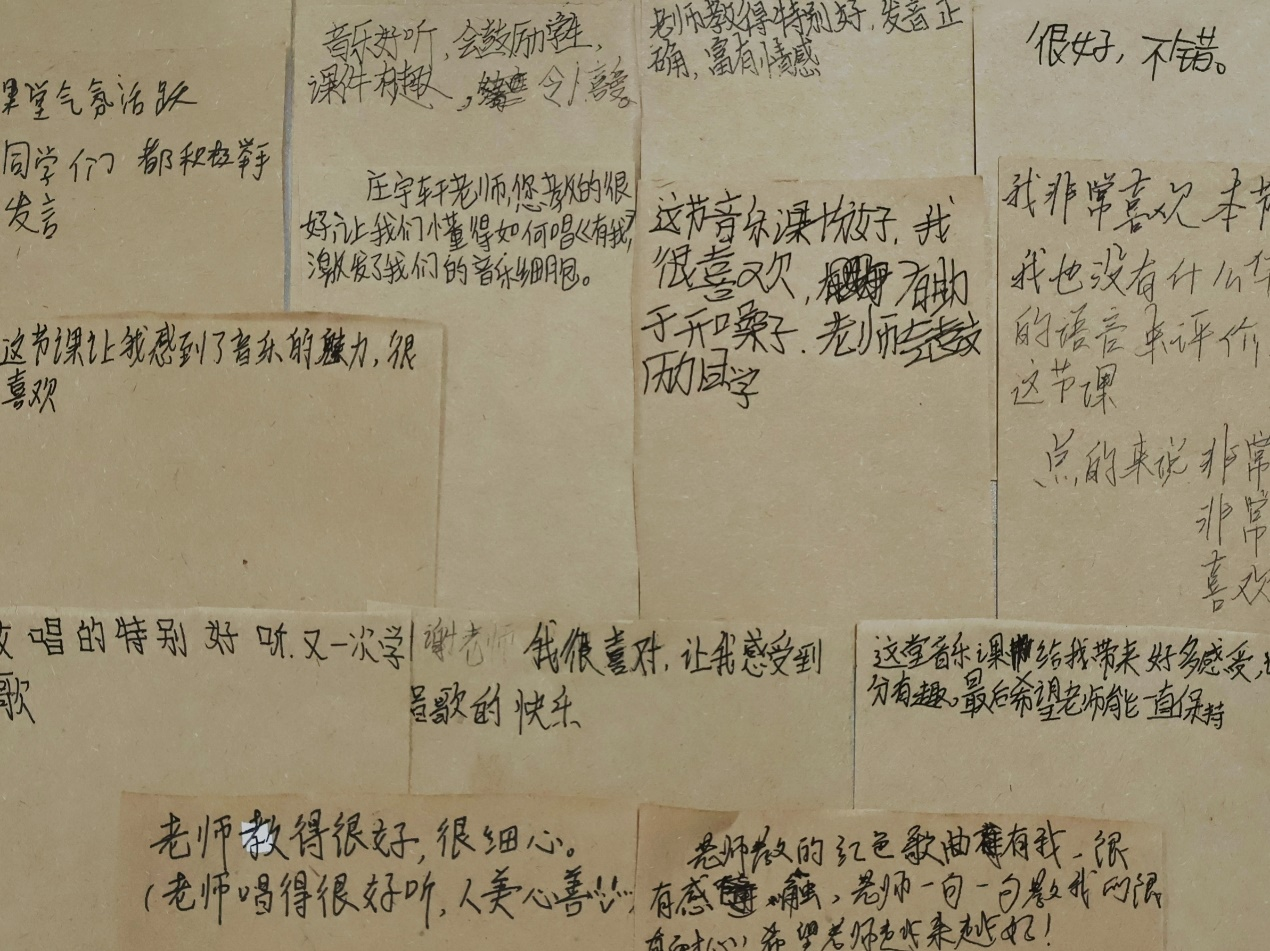 课堂气氛活跃
同学们 都积极举手
发言
音乐好听，会鼓励学生，
课件有趣，令人喜爱。
老师教得特别好，发音正
确，富有情感
很好，不错。
庄宇轩老师，您教的很
好，让我们懂得如何唱《有我》，
激发了我们的音乐细胞。
这节音乐课十分好，我
很喜欢，有助
于开嗓子．老师
同学
我非常喜欢 本节
我也没有什么华
的语言来评价
这节课
总的来说 非常
非常
喜欢
这节课让我感到了音乐的魅力，很
喜欢
唱的特别好听．又一次学
歌
谢老师 我很喜欢，让我感受到
唱歌的快乐
这堂音乐课给我带来好多感受，
分有趣。最后希望老师能一直保持
老师教得很好，很细心。
（老师唱得很好听，人美心善！！！
老师教的红色歌曲有我，很
有感触，老师一句一句教我们很
有耐心！希望老师越来越好！